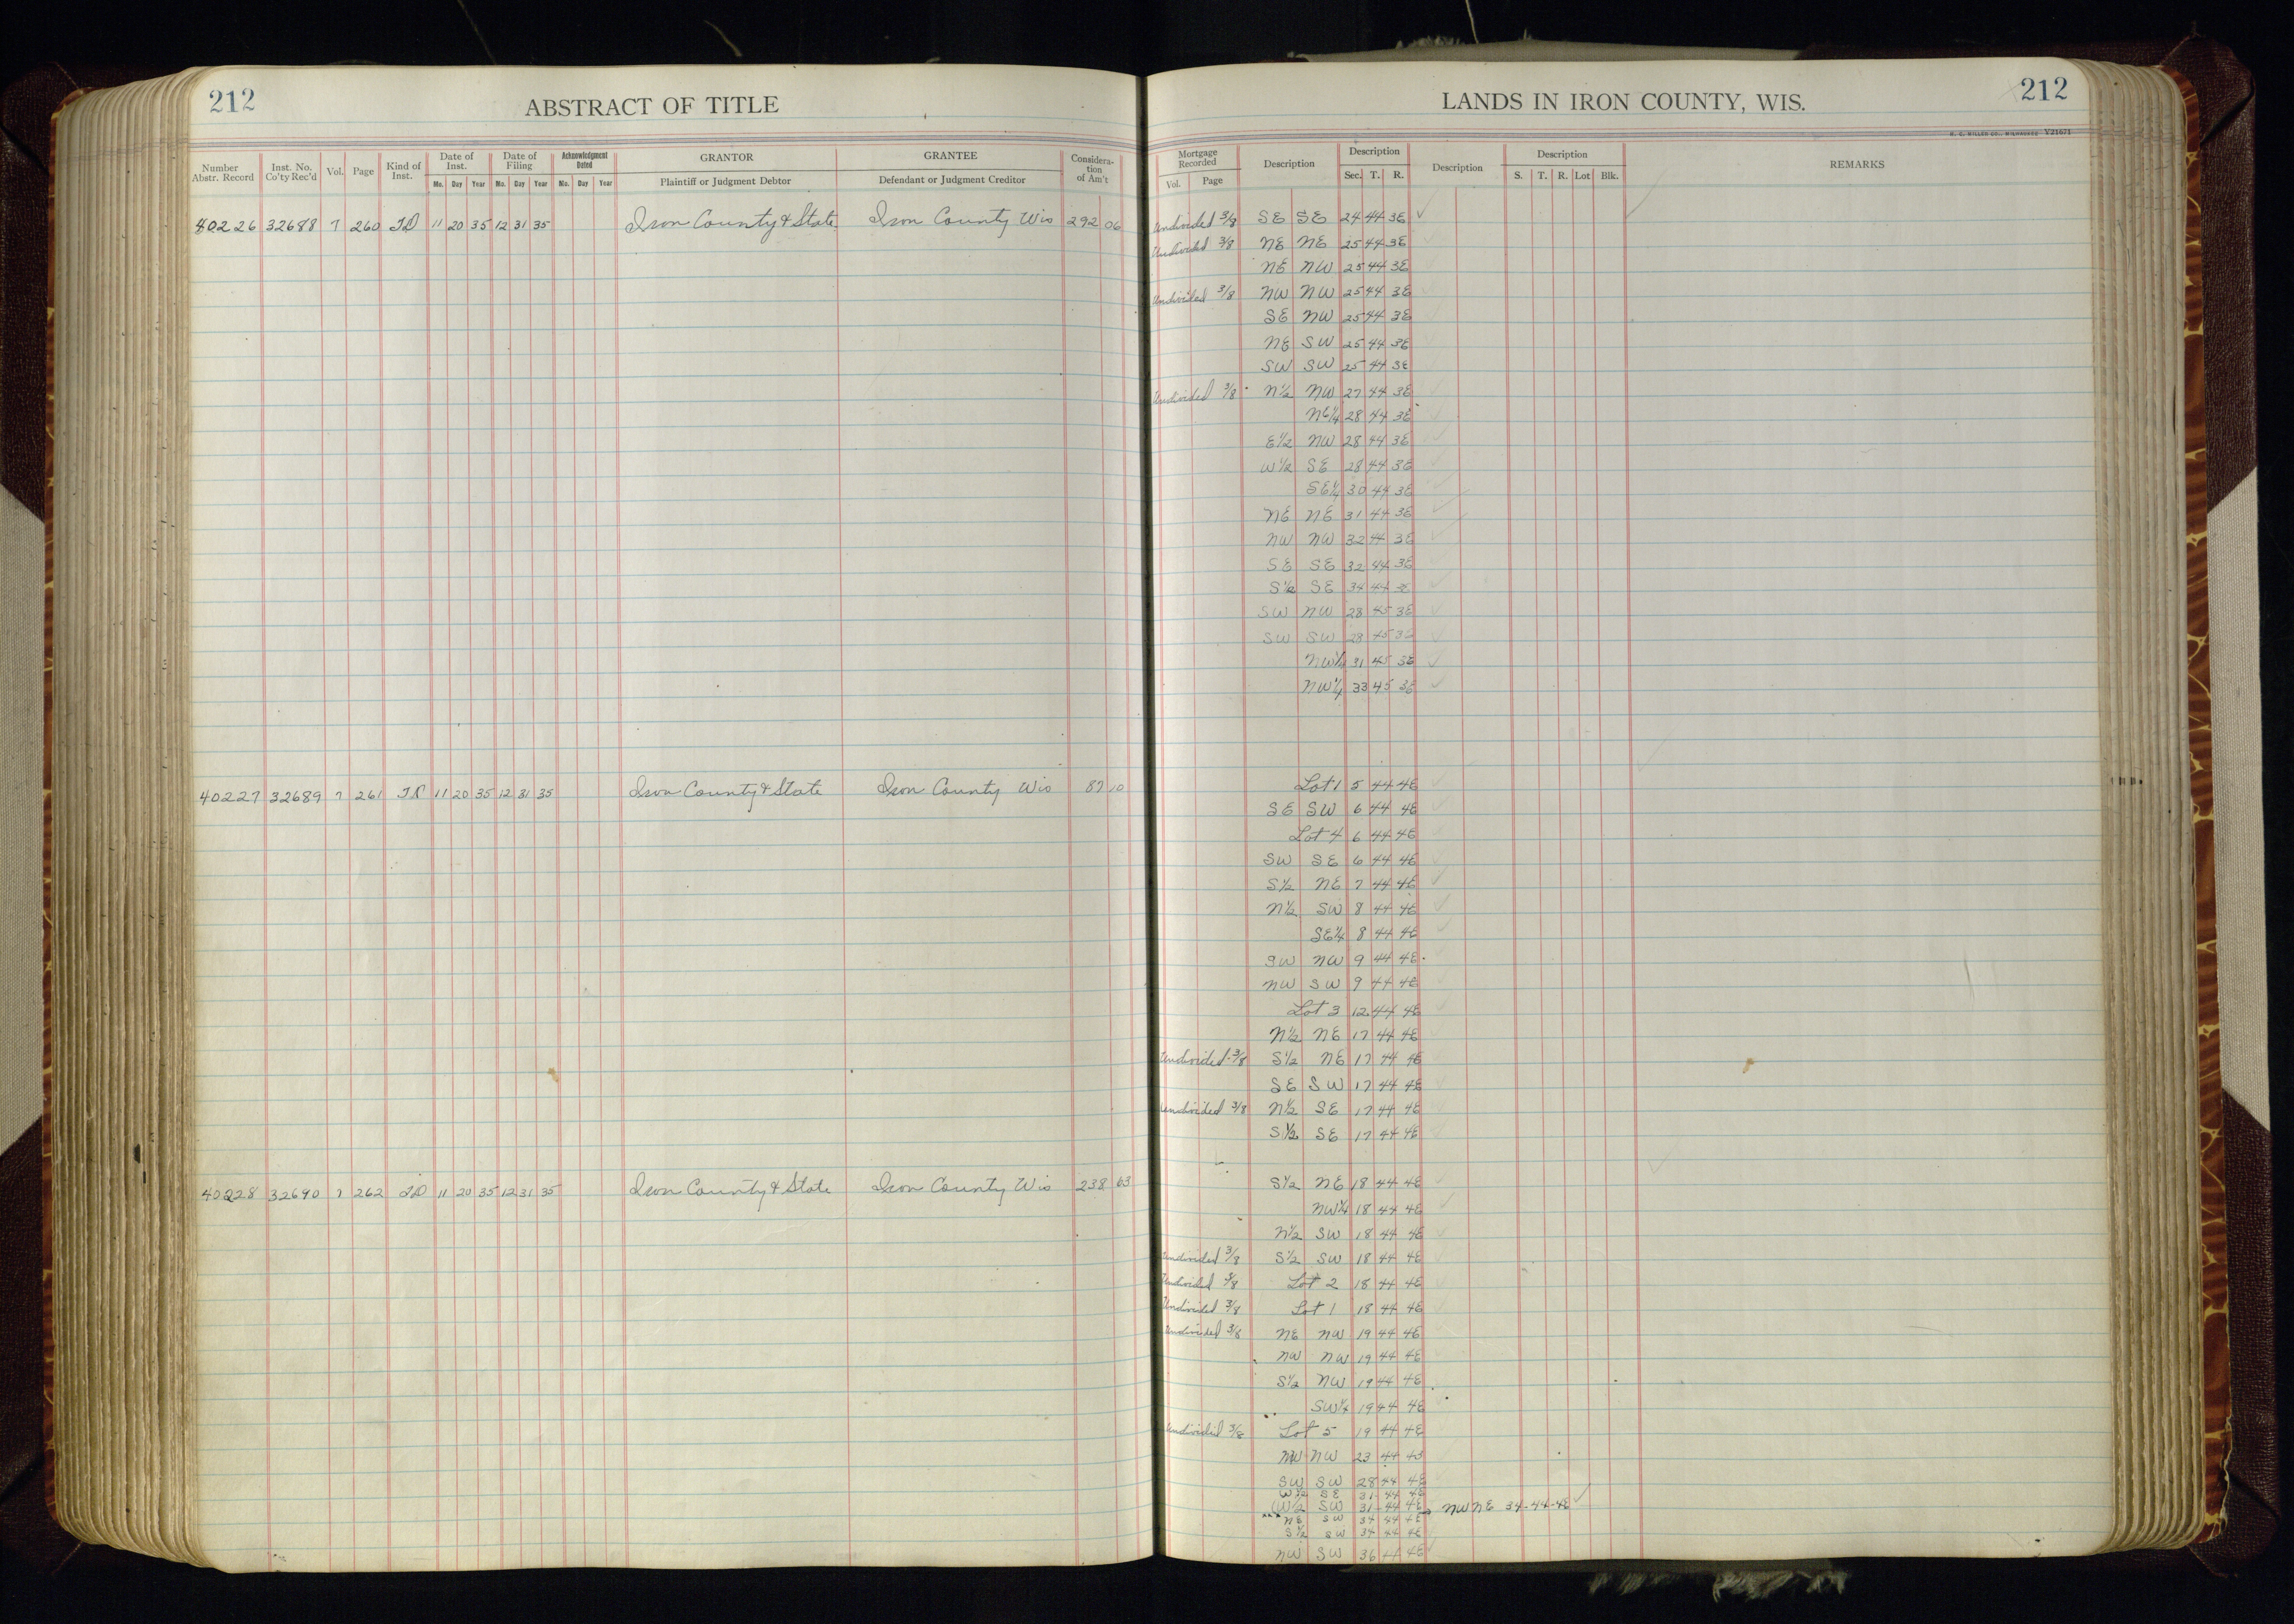 212
ABSTRACT OF TITLE
LANDS IN IRON COUNTY, WIS.
212
H. C. MILLER CO., MILWAUKEE V21671
Number Abstr. Record | Inst. No. Co'ty Rec'd | Vol. | Page | Kind of Inst. | Date of Inst. Mo. Day Year | Date of Filing Mo. Day Year | Acknowledgment Dated Mo. Day Year | GRANTOR Plaintiff or Judgment Debtor | GRANTEE Defendant or Judgment Creditor | Consideration of Am't
Mortgage Recorded Vol. Page | Description | Description Sec. T. R. | Description | Description S. T. R. Lot Blk. | REMARKS
40226 32688 7 260 TD 11 20 35 12 31 35 Iron County & State Iron County Wis 292 06 Undivided 3/8 SE SE 24 44 3E ✓
Undivided 3/8 NE NE 25 44 3E
NE NW 25 44 3E
Undivided 3/8 NW NW 25 44 3E
SE NW 25 44 3E
NE SW 25 44 3E
SW SW 25 44 3E
Undivided 3/8 N½ NW 27 44 3E
NE¼ 28 44 3E
E½ NW 28 44 3E
W½ SE 28 44 3E
SE¼ 30 44 3E
NE NE 31 44 3E
NW NW 32 44 3E
SE SE 32 44 3E
S½ SE 34 44 3E
SW NW 28 45 3E
SW SW 28 45 3E
NW¼ 31 45 3E
NW¼ 33 45 3E
40227 32689 7 261 TD 11 20 35 12 31 35 Iron County & State Iron County Wis 87 10 Lot 1 5 44 4E
SE SW 6 44 4E
Lot 4 6 44 4E
SW SE 6 44 4E
S½ NE 7 44 4E
N½ SW 8 44 4E
SE¼ 8 44 4E
SW NW 9 44 4E
NW SW 9 44 4E
Lot 3 12 44 4E
N½ NE 17 44 4E
Undivided 3/8 S½ NE 17 44 4E
SE SW 17 44 4E
Undivided 3/8 N½ SE 17 44 4E
S½ SE 17 44 4E
40228 32690 7 262 TD 11 20 35 12 31 35 Iron County & State Iron County Wis 238 63 S½ NE 18 44 4E
NW¼ 18 44 4E
N½ SW 18 44 4E
Undivided 3/8 S½ SW 18 44 4E
Undivided 3/8 Lot 2 18 44 4E
Undivided 3/8 Lot 1 18 44 4E
Undivided 3/8 NE NW 19 44 4E
NW NW 19 44 4E
S½ NW 19 44 4E
SW¼ 19 44 4E
Undivided 3/8 Lot 5 19 44 4E
NW NW 23 44 4E
SW SW 28 44 4E
W½ SE 31 44 4E
W½ SW 31 44 4E NW NE 34-44-4E ✓
NE SW 34 44 4E
S½ SW 34 44 4E
NW SW 36 44 4E